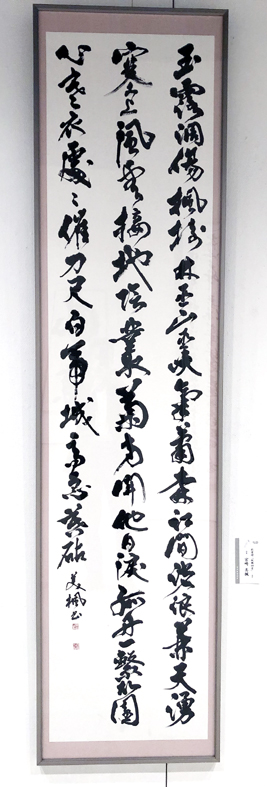 玉露凋傷楓樹林巫山巫峽氣蕭森江間波浪兼天湧
塞上風雲接地陰叢菊兩開他日淚孤舟一繫故園
心寒衣處々催刀尺白帝城高急暮砧 美楓書